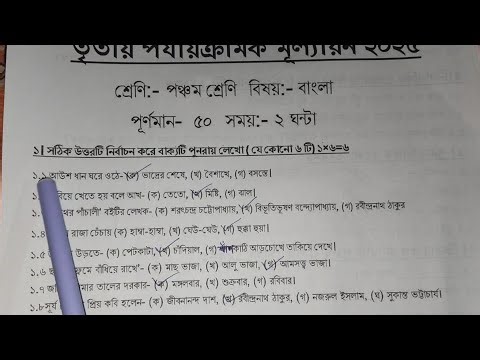 তৃতীয় পর্যায়ক্রমিক মূল্যায়ন ২০২৫
শ্রেণি:- পঞ্চম শ্রেণি বিষয়:- বাংলা
পূর্ণমান- ৫০ সময়:- ২ ঘন্টা
১। সঠিক উত্তরটি নির্বাচন করে বাক্যটি পুনরায় লেখো ( যে কোনো ৬ টি) ১×৬=৬
১.১ আউশ ধান ঘরে ওঠে- (ক) ভাদ্রের শেষে, (খ) বৈশাখে, (গ) বসন্তে।
বিয়ে খেতে হয় বলে আখ- (ক) তেতো, (খ) মিষ্টি, (গ) ঝাল।
পাঁচালী' বইটির লেখক- (ক) শরৎচন্দ্র চট্টোপাধ্যায়, (খ) বিভূতিভূষণ বন্দ্যোপাধ্যায়, (গ) রবীন্দ্রনাথ ঠাকুর
১.৪ রাজা চেঁচায় (ক) হাম্বা-হাম্বা, (খ) ঘেউ-ঘেউ, (গ) হুক্কা হুয়া।
১.৫ উড়তে- (ক) পেটকাটা, (খ) চাঁদিয়াল, কাঠি আড়চোখে তাকিয়ে দেখে।
১.৬ বাঁধিয়ে রাখে'- (ক) মাছ ভাজা, (খ) আলু ভাজা, (গ) আমসত্ত্ব ভাজা।
১.৭ তালের দরকার- (ক) মঙ্গলবার, (খ) শুক্রবার, (গ) রবিবার।
১.৮ সূর্য প্রিয় কবি হলেন- (ক) জীবনানন্দ দাশ, (খ) রবীন্দ্রনাথ ঠাকুর, (গ) নজরুল ইসলাম, (ঘ) সুকান্ত ভট্টাচার্য।